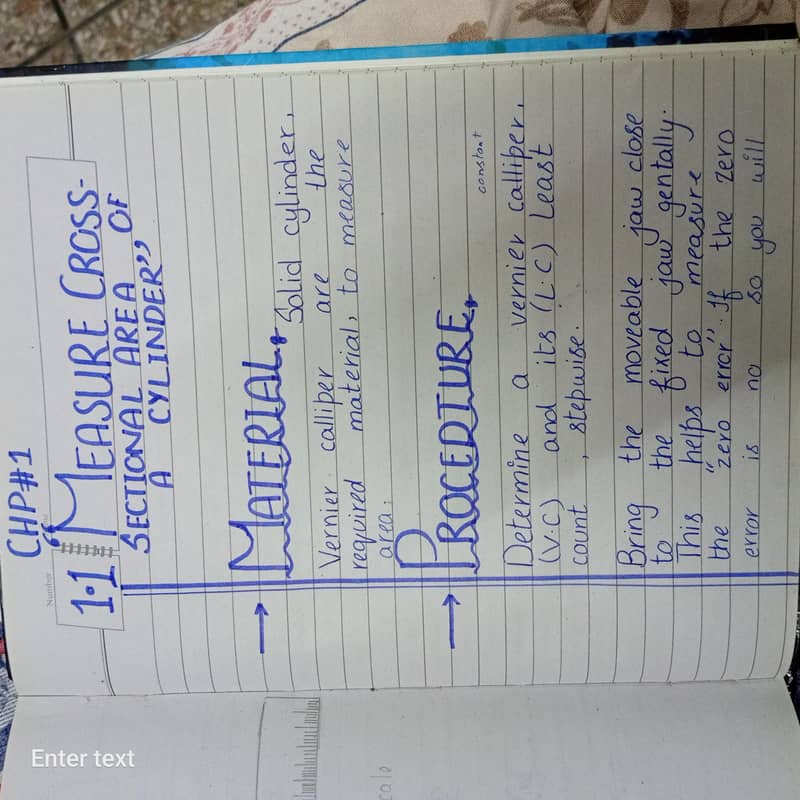 CHP#1
Number
1.1 "MEASURE CROSS-
SECTIONAL AREA OF
A CYLINDER"
→ MATERIAL
Solid cylinder,
Vernier calliper are the
required material, to measure
area.
→ PROCEDTURE
constant
Determine a vernier calliper,
(V.C) and its (L.C) Least
count, stepwise.
Bring the moveable jaw close
to the fixed jaw gentally.
This helps to measure
the "zero error". If the zero
error is no so you will
cale
Enter text